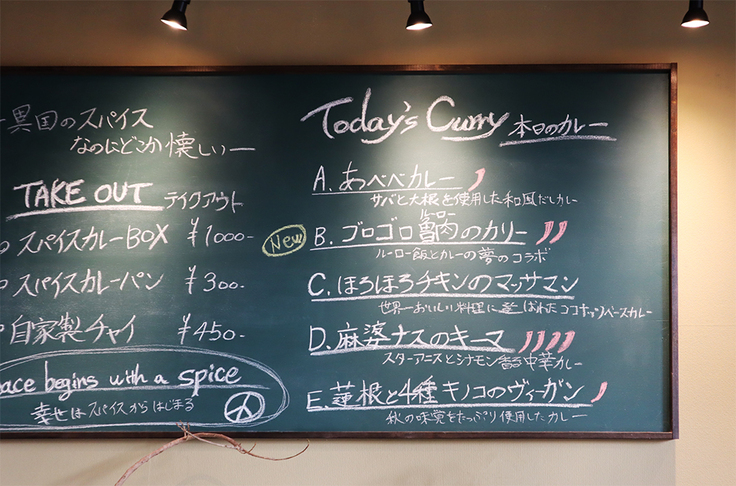 異国のスパイス
なのにどこか懐しい―
TAKE OUT テイクアウト
スパイスカレーBOX ¥1000-
スパイスカレーパン ¥300-
自家製チャイ ¥450-
ace begins with a spice
幸せはスパイスからはじまる
Today's Curry 本日のカレー
A. あっべべカレー
サバと大根を使用した和風だしカレー
New
ルーロー
B. ゴロゴロ魯肉のカリー
ルーロー飯とカレーの夢のコラボ
C. ほろほろチキンのマッサマン
世界一おいしい料理に選ばれたココナッツベースカレー
D. 麻婆ナスのキーマ
スターアニスとシナモン香る中華カレー
E. 蓮根と4種キノコのヴィーガン
秋の味覚をたっぷり使用したカレー